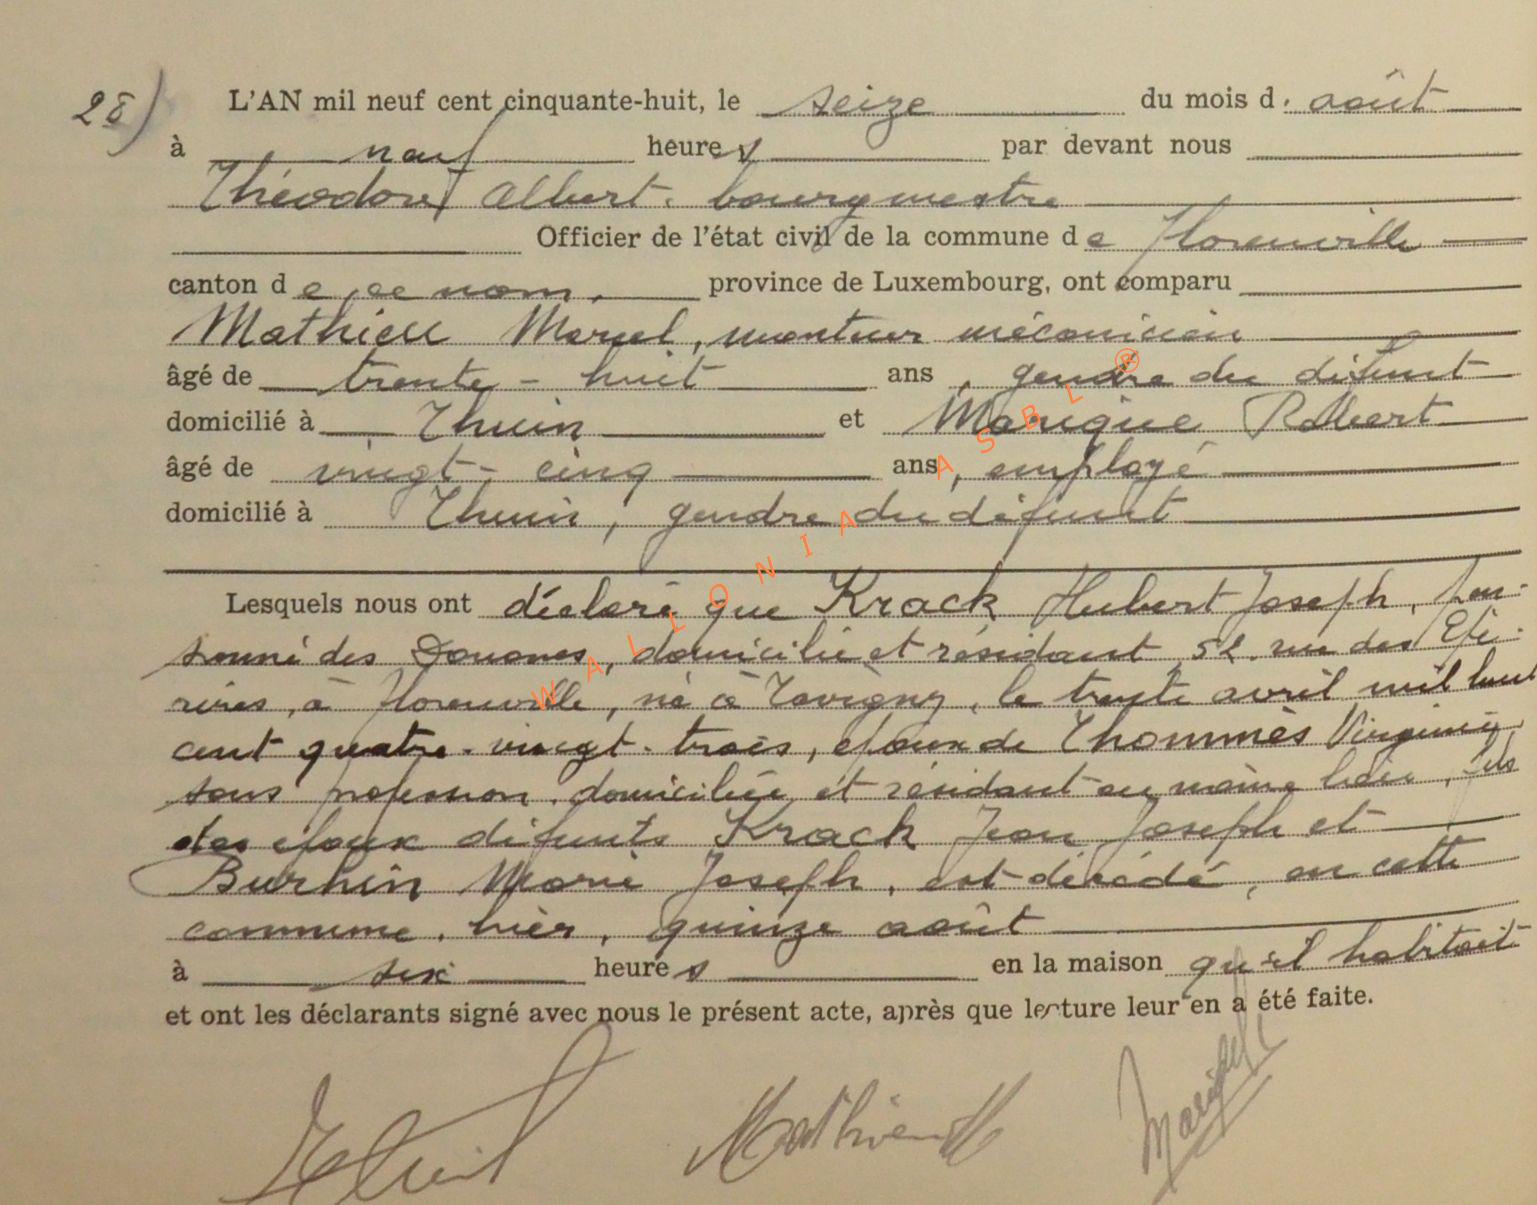 28) L'AN mil neuf cent cinquante-huit, le seize du mois d' août
à neuf heures par devant nous
Théodore Albert, bourgmestre
Officier de l'état civil de la commune de Florenville
canton de ce nom, province de Luxembourg, ont comparu
Mathieu Marcel, monteur mécanicien
âgé de trente-huit ans, gendre du défunt
domicilié à Thuin et Manique Robert
âgé de vingt-cinq ans, employé
domicilié à Thuin, gendre du défunt
Lesquels nous ont déclaré que Krack Hubert Joseph, pen-
sionné des Douanes, domicilié et résidant, 52 rue des Epi-
nes, à Florenville, né à Tavigny, le trente avril mil huit
cent quatre-vingt-trois, époux de Thommès Virginie,
sans profession, domiciliée et résidant au même lieu, fils
des époux défunts Krack Jean Joseph et
Burhin Marie Joseph, est décédé, en cette
commune, hier, quinze août
à six heures en la maison qu'il habitait
et ont les déclarants signé avec nous le présent acte, après que lecture leur en a été faite.
Mathieu M
WALLONIA ASBL ®